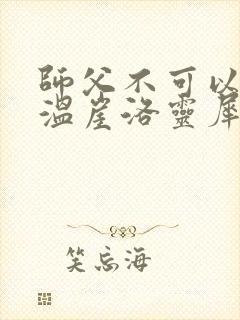 師父不可以
溫崖洛靈犀
笑忘海